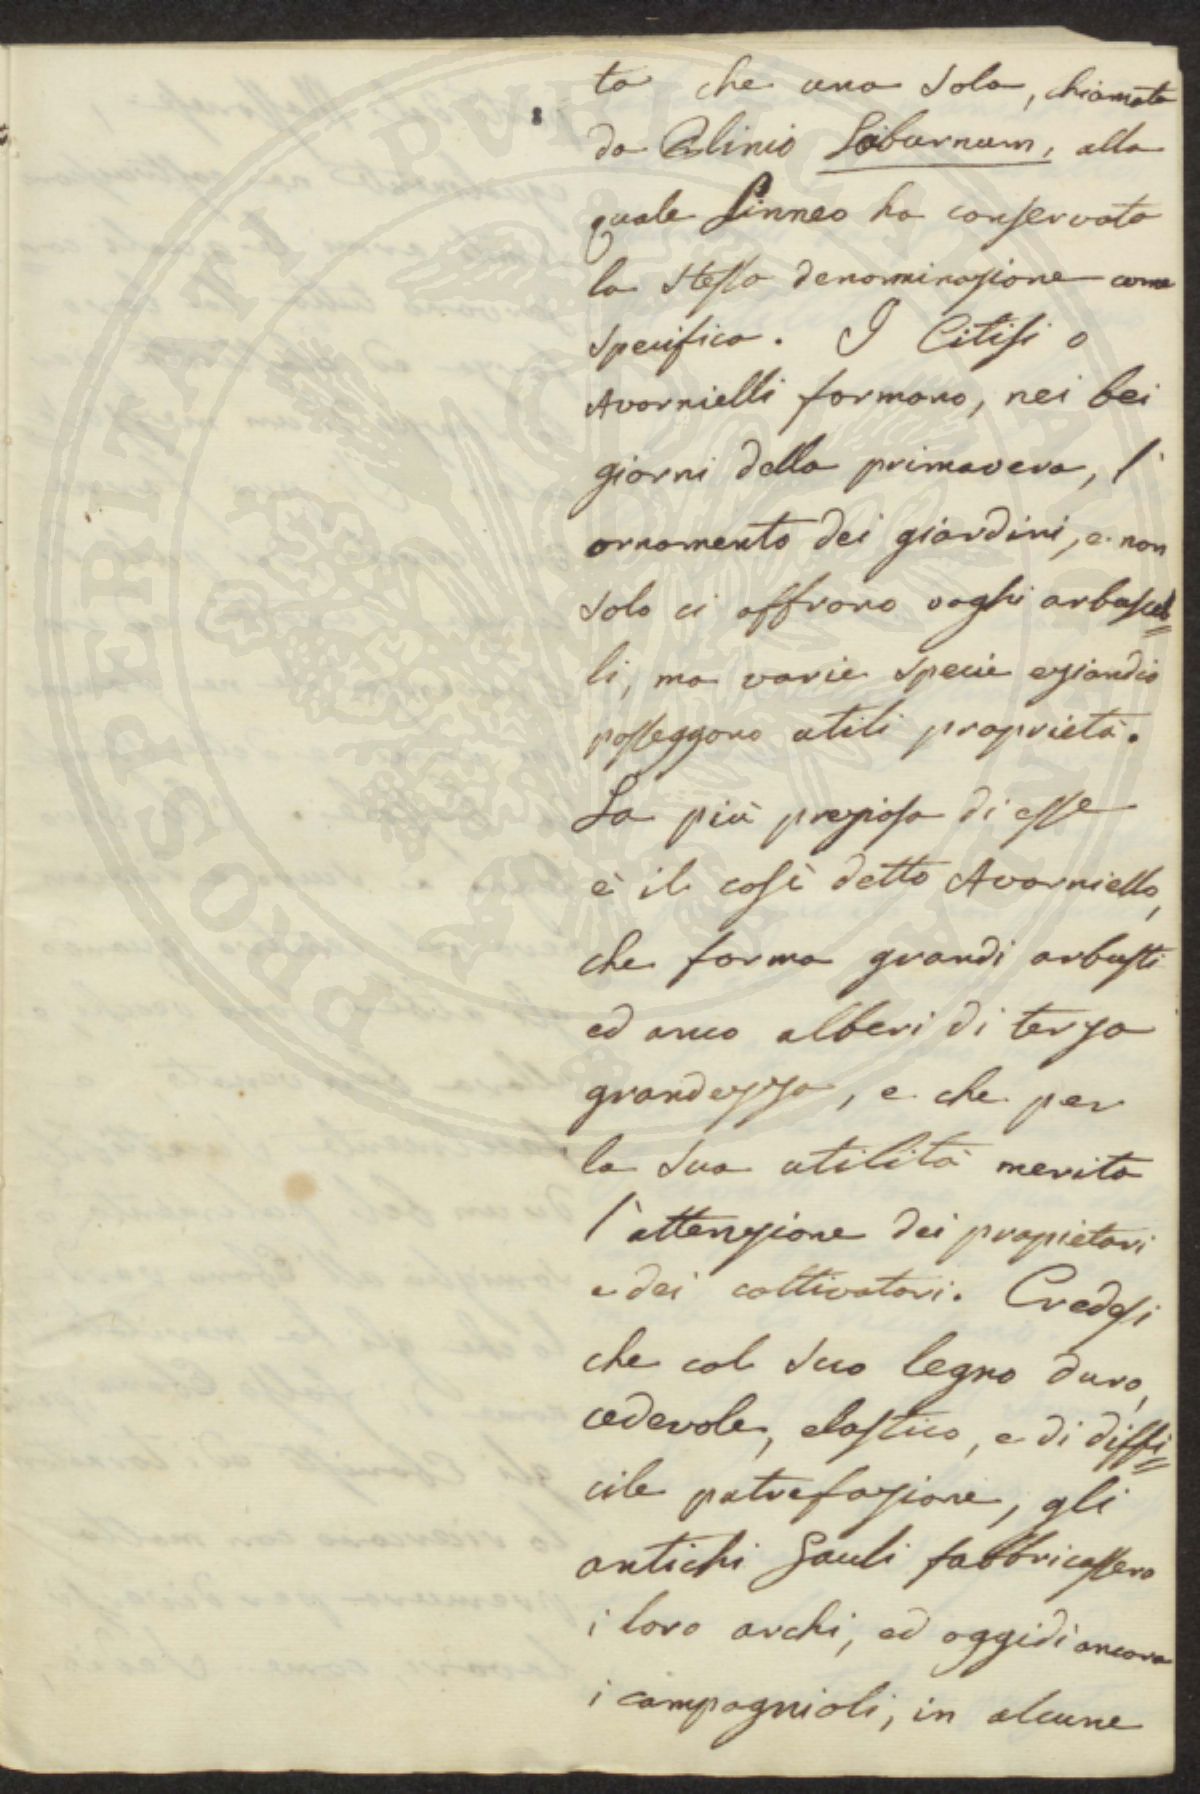 ta che una sola, chiamata
da Plinio Laburnum, alla
quale Linneo ha conservata
la stessa denominazione come
specifica. I Citisi o
Avornielli formano, nei bei
giorni della primavera, l'
ornamento dei giardini, e non
solo ci offrono vaghi arbuscel=
li, ma varie specie eziandio
posseggono utili proprietà.
La più preziosa di esse
è il così detto Avorniello,
che forma grandi arbusti
ed anco alberi di terza
grandezza, e che per
la sua utilità merita
l'attenzione dei propietari
e dei coltivatori. Credesi
che col suo legno duro,
cedevole, elastico, e di diffi=
cile putrefazione, gli
antichi Gauli fabbricassero
i loro archi, ed oggidì ancora
i campagnioli, in alcune
PROSPERITATI PUBLICAE